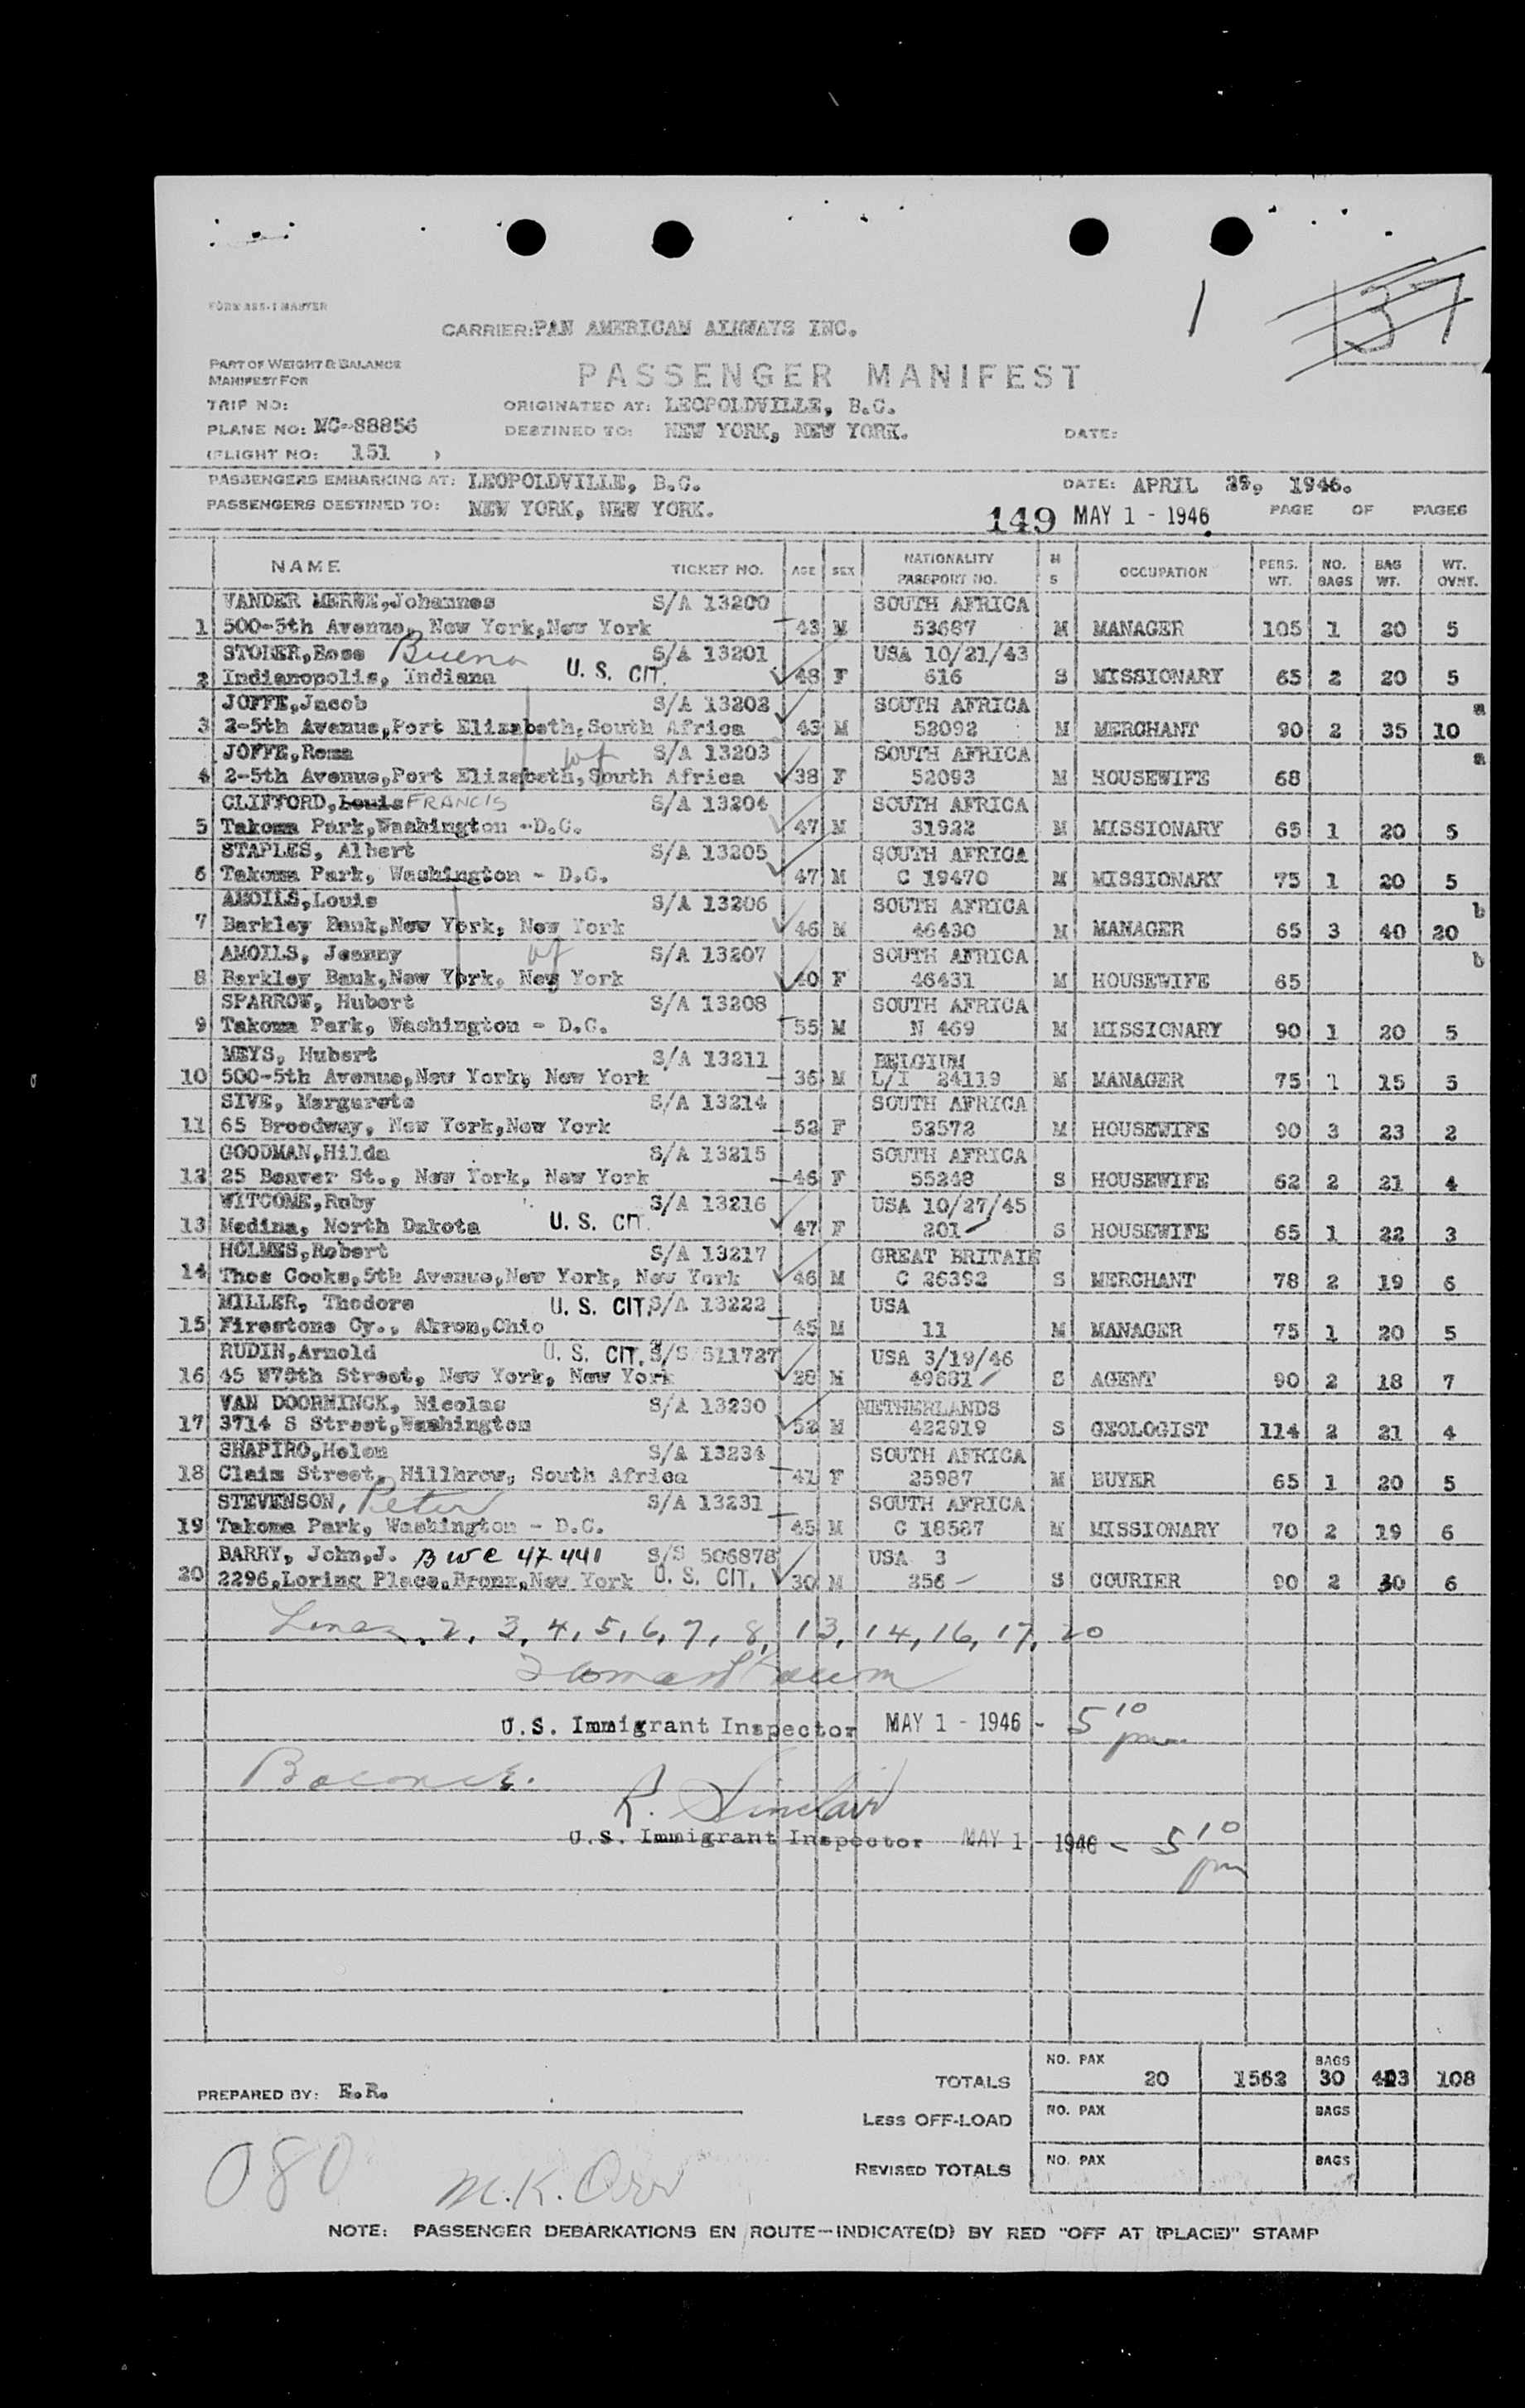 1 37
FORM 885-1 MASTER
CARRIER: PAN AMERICAN AIRWAYS INC.
PART OF WEIGHT & BALANCE
MANIFEST FOR
PASSENGER MANIFEST
TRIP NO: ORIGINATED AT: LEOPOLDVILLE, B.C.
PLANE NO: NC-88856 DESTINED TO: NEW YORK, NEW YORK. DATE:
(FLIGHT NO: 151 )
PASSENGERS EMBARKING AT: LEOPOLDVILLE, B.C. DATE: APRIL 1946.
PASSENGERS DESTINED TO: NEW YORK, NEW YORK. 149 MAY 1 - 1946 PAGE OF PAGES
NAME TICKET NO. AGE SEX NATIONALITY PASSPORT NO. M S OCCUPATION PERS. WT. NO. BAGS BAG WT. WT. OVNT.
VANDER MERWE,Johannes S/A 13200 SOUTH AFRICA
1 500-5th Avenue, New York,New York 43 M 53687 M MANAGER 105 1 20 5
STONER,Rose Buena S/A 13201 USA 10/21/43
2 Indianopolis, Indiana U. S. CIT. 48 F 616 S MISSIONARY 65 2 20 5
JOFFE,Jacob S/A 13202 SOUTH AFRICA a
3 2-5th Avenue,Port Elizabeth,South Africa 43 M 52092 M MERCHANT 90 2 35 10
JOFFE,Roma wf S/A 13203 SOUTH AFRICA a
4 2-5th Avenue,Port Elizabeth,South Africa 38 F 52093 M HOUSEWIFE 68
CLIFFORD,Louis FRANCIS S/A 13204 SOUTH AFRICA
5 Takoma Park,Washington -D.C. 47 M 31922 M MISSIONARY 65 1 20 5
STAPLES, Albert S/A 13205 SOUTH AFRICA
6 Takoma Park, Washington - D.C. 47 M C 19470 M MISSIONARY 75 1 20 5
AMOILS,Louis S/A 13206 SOUTH AFRICA b
7 Barkley Bank,New York, New York 46 M 46430 M MANAGER 65 3 40 20
AMOILS, Jeanny wf S/A 13207 SOUTH AFRICA b
8 Barkley Bank,New York, New York 40 F 46431 M HOUSEWIFE 65
SPARROW, Hubert S/A 13208 SOUTH AFRICA
9 Takoma Park, Washington - D.C. 55 M N 469 M MISSIONARY 90 1 20 5
MEYS, Hubert S/A 13211 BELGIUM
10 500-5th Avenue,New York, New York 36 M L/I 24119 M MANAGER 75 1 15 5
SIVE, Margarete S/A 13214 SOUTH AFRICA
11 65 Broadway, New York,New York 52 F 52572 M HOUSEWIFE 90 3 23 2
GOODMAN,Hilda S/A 13215 SOUTH AFRICA
12 25 Beaver St., New York, New York 46 F 55248 S HOUSEWIFE 62 2 21 4
WITCOME,Ruby S/A 13216 USA 10/27/45
13 Medina, North Dakota U. S. CIT. 47 F 201 S HOUSEWIFE 65 1 22 3
HOLMES,Robert S/A 13217 GREAT BRITAIN
14 Thos Cooks,5th Avenue,New York, New York 46 M C 26392 S MERCHANT 78 2 19 6
MILLER, Thodore U. S. CIT. S/A 13222 USA
15 Firestone Cy., Akron,Ohio 45 M 11 M MANAGER 75 1 20 5
RUDIN,Arnold U. S. CIT. S/S 511727 USA 3/19/46
16 45 W75th Street, New York, New York 28 M 49681 S AGENT 90 2 18 7
VAN DOORNINCK, Nicolas S/A 13230 NETHERLANDS
17 3714 S Street,Washington 52 M 422919 S GEOLOGIST 114 2 21 4
SHAPIRO,Helen S/A 13234 SOUTH AFRICA
18 Claim Street, Hillbrow, South Africa 41 F 25987 M BUYER 65 1 20 5
STEVENSON, Peter S/A 13231 SOUTH AFRICA
19 Takoma Park, Washington - D.C. 45 M C 18587 M MISSIONARY 70 2 19 6
BARRY, John,J. BWC 47441 S/S 506878 USA 3
20 2296,Loring Place,Bronx,New York U. S. CIT. 30 M 256 S COURIER 90 2 30 6
Lines, 2, 3, 4, 5, 6, 7, 8, 13, 14, 16, 17, 20
U.S. Immigrant Inspector MAY 1 - 1946 - 5 10 pm
Balance.
R. Sinclair
U.S. Immigrant Inspector MAY 1 - 1946 - 5 10 pm
NO. PAX BAGS
TOTALS 20 1562 30 423 108
PREPARED BY: E.R.
LESS OFF-LOAD NO. PAX BAGS
REVISED TOTALS NO. PAX BAGS
080 M.K. Orr
NOTE: PASSENGER DEBARKATIONS EN ROUTE—INDICATE(D) BY RED "OFF AT (PLACE)" STAMP